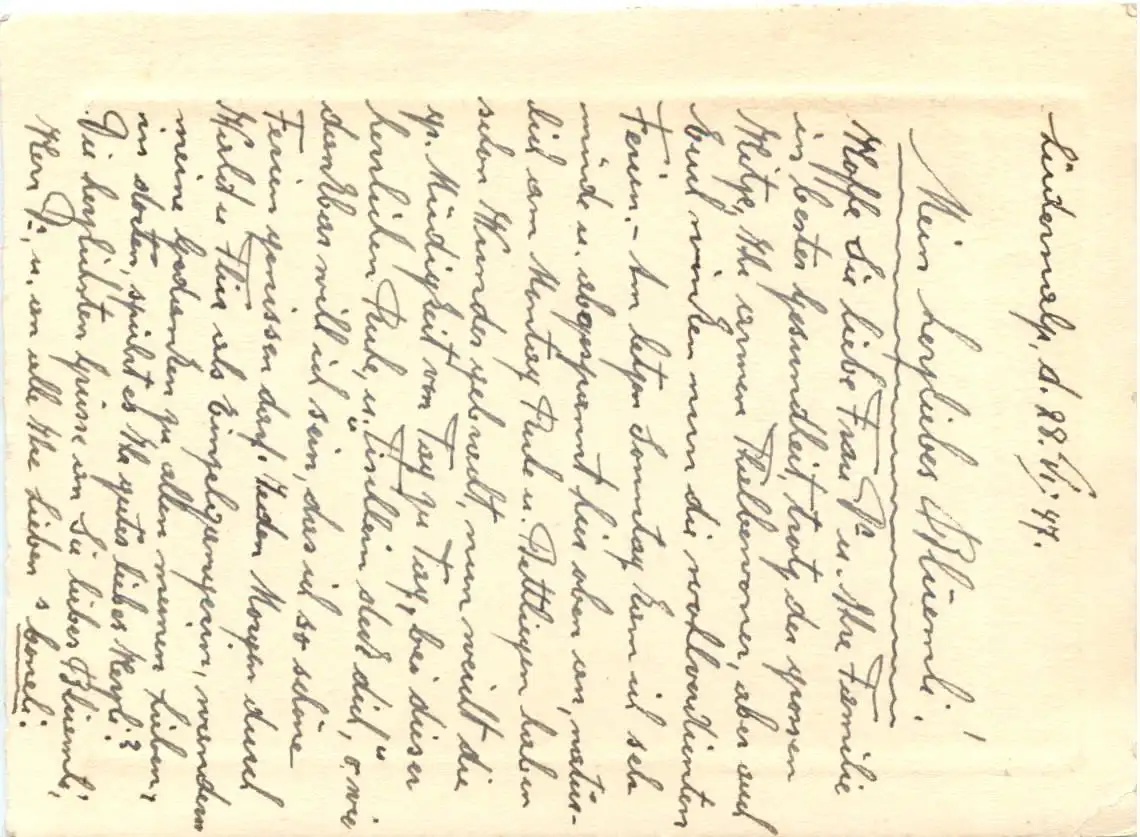 Lüdernalp, d. 28. VI. 47.
Mein herzliebes Blüemli!
Hoffe Sie liebe Frau Dr u. Ihre Familie
in bester Gesundheit, trotz der grossen
Hitze, Ihr armen Thalbewoner, aber auch
Euch winken nun die wohlverdienten
Ferien. - Am letzen Sonntag kam ich sehr
müde u. abgespannt hier oben an, natür-
lich am Montag Ruhe u. Bettliegen haben
schon Wunder gebracht, nun weicht die
gr. Müdigkeit von Tag zu Tag, bei dieser
herrlichen Ruhe, u. "Tischlein deck dich", o wie
dankbar will ich sein, das ich so schöne
Ferien geniessen darf. Jeden Morgen durch
Wald u. Flur als Einzelgängerin, wandern
meine Gedanken zu allen meinen Lieben,
in dorten, spürt es Ihr gutes liebes Herzli?
Die herzlichsten Grüsse an Sie liebes Blüemli,
Herr Dr, u. an alle Ihre Lieben s